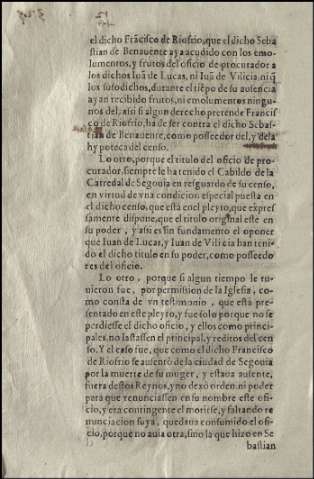 el dicho Frãcisco de Riofrio, que el dicho Seba
stian de Benauente aya acudido con los emo-
lumentos, y frutos del oficio de procurador a
los dichos Iuã de Lucas, ni Iuã de Vilicia, ni q̃
los susodichos, durante el tiẽpo de su ausencia
ayan recibido frutos, ni emolumentos ningu-
nos del, assi si algun derecho pretende Francis
co de Riofrio, ha de ser contra el dicho Sebas-
tian de Benauente, como posseedor del, y de la
hypoteca del censo.
Lo otro, porque el titulo del oficio de pro-
curador, siempre le ha tenido el Cabildo de la
Catredal de Segouia en resguardo de su censo,
en virtud de vna condicion especial puesta en
el dicho censo, que està en el pleyto, que expres
samente dispone, que el titulo original este en
su poder, y assi es sin fundamento el oponer
que Iuan de Lucas, y Iuan de Vilicia han teni-
do el dicho titulo en su poder, como posseedo
res del oficio.
Lo otro, porque si algun tiempo le tu-
uieron fue, por permission de la Iglesia, co-
mo consta de vn testimonio, que està pre-
sentado en este pleyto, y fue solo porque no se
perdiesse el dicho oficio, y ellos como princi-
pales, no lastassen el principal, y reditos del cen
so. Y el caso fue, que como el dicho Francisco
de Riofrio se ausentò de la ciudad de Segouia
por la muerte de su muger, y estaua ausente,
fuera destos Reynos, y no dexò orden, ni poder
para que renunciassen en su nombre este ofi-
cio, y era contingente el morirse, y faltando re
nunciacion suya, quedaua consumido el ofi-
cio, porque no auia otra, sino la que hizo en Se
bastian